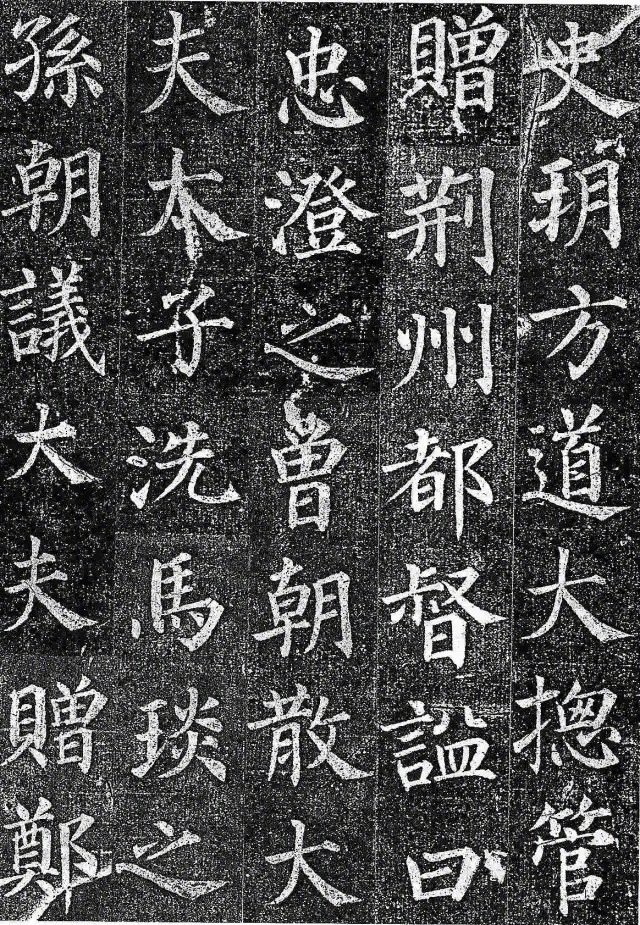 史朔方道大揔管
贈荆州都督謚曰
忠澄之曾朝散大
夫太子洗馬琰之
孫朝議大夫贈鄭